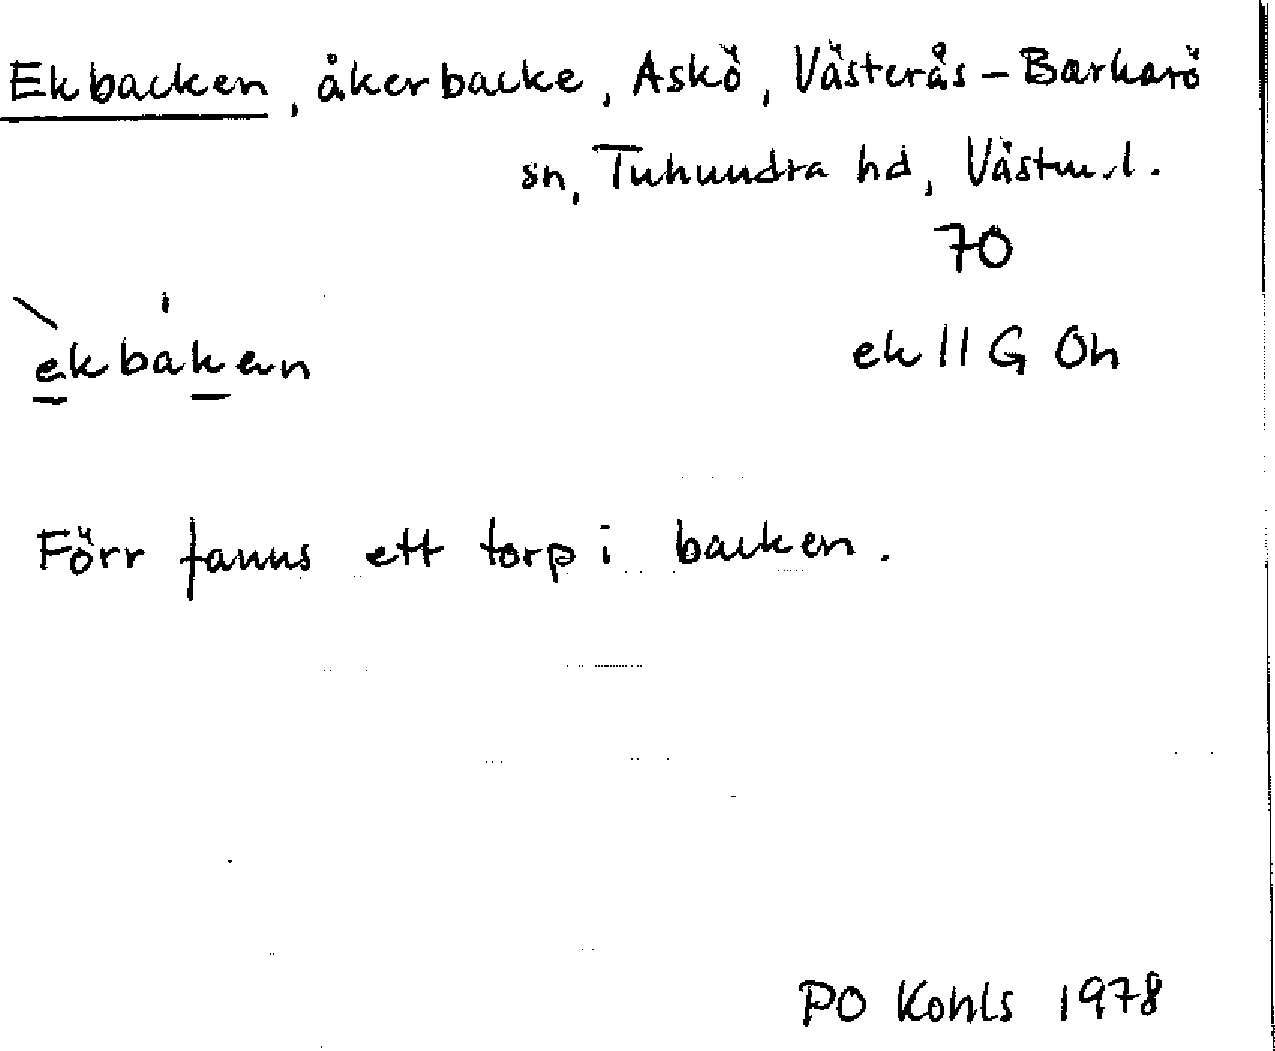 Ekbacken, åkerbacke, Askö, Västerås-Barkarö
sn, Tuhundra hd, Västm.l.
70
ekbakän
ek 11 G Oh
Förr fanns ett torp i backen.
PO Kohls 1978